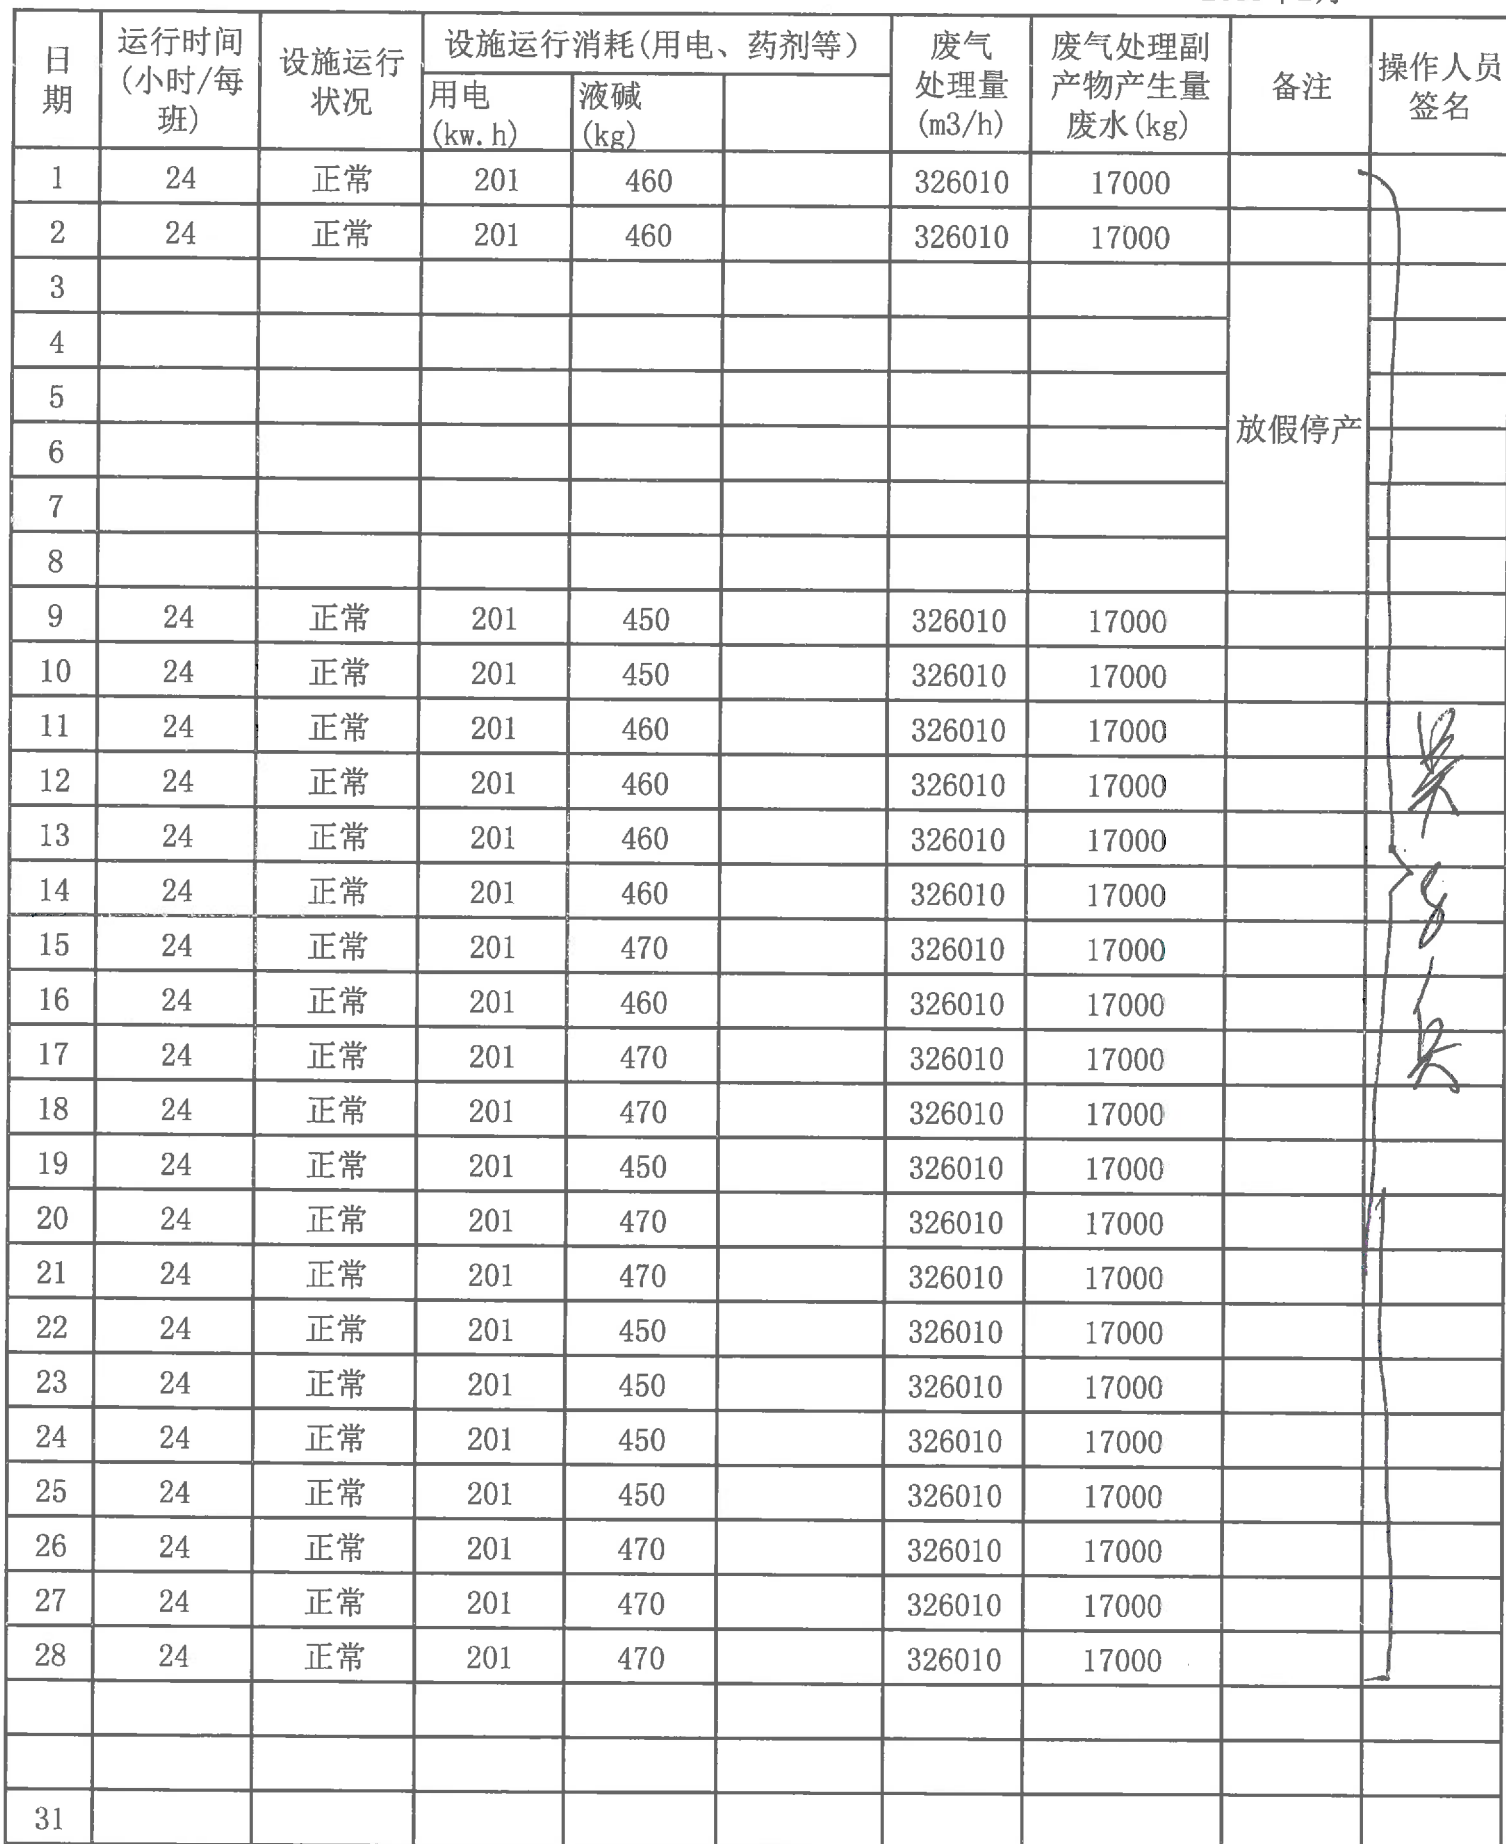 日期 运行时间(小时/每班) 设施运行状况 设施运行消耗(用电、药剂等) 废气处理量(m3/h) 废气处理副产物产生量废水(kg) 备注 操作人员签名
用电(kw.h) 液碱(kg)
1 24 正常 201 460 326010 17000
2 24 正常 201 460 326010 17000
3
4
5
放假停产
6
7
8
9 24 正常 201 450 326010 17000
10 24 正常 201 450 326010 17000
11 24 正常 201 460 326010 17000
12 24 正常 201 460 326010 17000
13 24 正常 201 460 326010 17000
14 24 正常 201 460 326010 17000
15 24 正常 201 470 326010 17000
16 24 正常 201 460 326010 17000
17 24 正常 201 470 326010 17000
18 24 正常 201 470 326010 17000
19 24 正常 201 450 326010 17000
20 24 正常 201 470 326010 17000
21 24 正常 201 470 326010 17000
22 24 正常 201 450 326010 17000
23 24 正常 201 450 326010 17000
24 24 正常 201 450 326010 17000
25 24 正常 201 450 326010 17000
26 24 正常 201 470 326010 17000
27 24 正常 201 470 326010 17000
28 24 正常 201 470 326010 17000
31